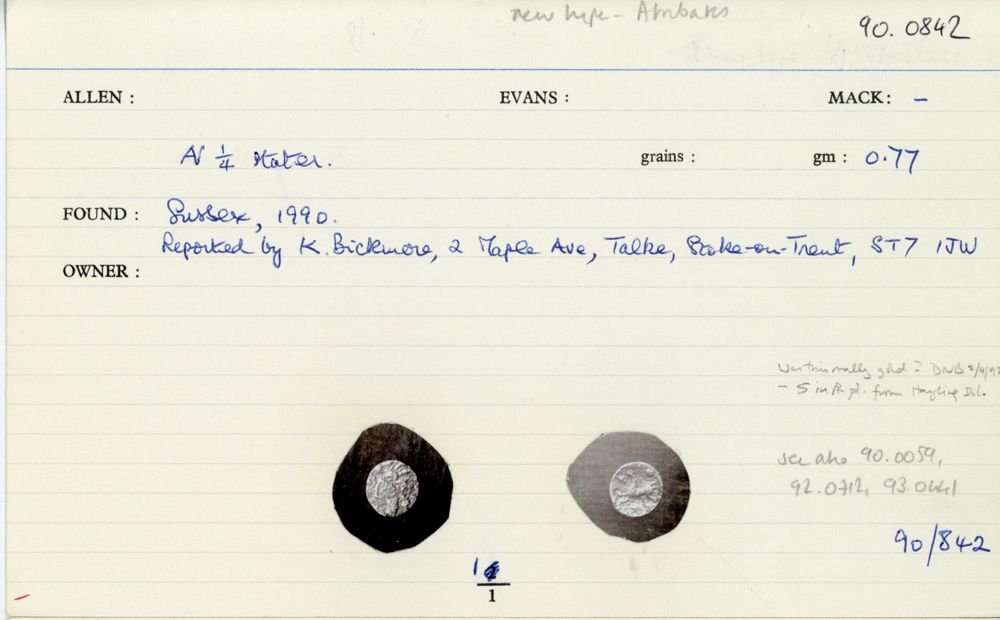 new type - Atrebates
90.0842
ALLEN : EVANS : MACK: –
AV 1/4 Stater. grains : gm : 0.77
FOUND : Sussex, 1990.
Reported by K. Bickmore, 2 Maple Ave, Talke, Stoke-on-Trent, ST7 1JW
OWNER :
Was this really gold? DNB 2/4/92
– 5 in AR pl. from Hayling Isl.
see also 90.0059,
92.0712, 93.0441
90/842
1
1